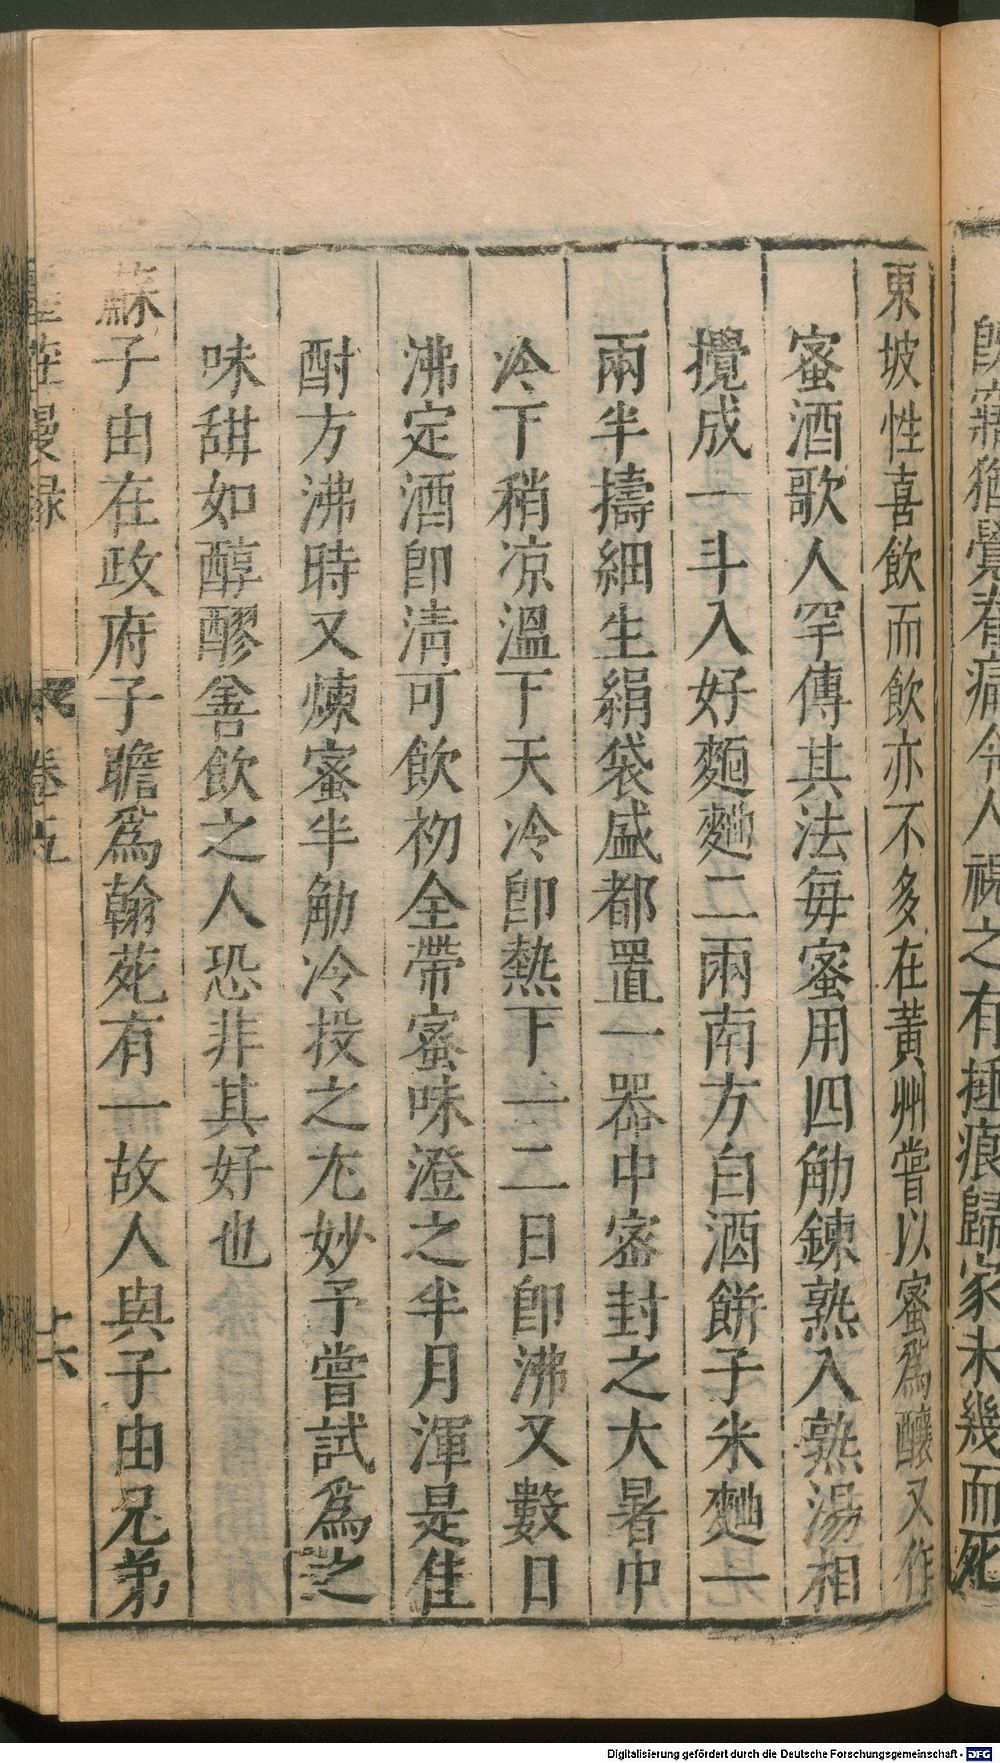 既寤猶覺有痛令人視之有捶痕歸家未幾而死
東坡性喜飲而飲亦不多在黃州嘗以蜜爲釀又作
蜜酒歌人罕傳其法每蜜用四觔鍊熟入熟湯相
攪成一斗入好麵麯二兩南方白酒餅子米麯一
兩半擣細生絹袋盛都置一器中密封之大暑中
冷下稍凉溫下天冷卽熱下一二日卽沸又數日
沸定酒卽淸可飲初全帶蜜味澄之半月渾是佳
酎方沸時又煉蜜半觔冷投之尢妙予嘗試爲之
味甜如醇醪善飲之人恐非其好也
蘇子由在政府子瞻爲翰苑有一故人與子由兄弟
墨莊漫録
卷五
十六
Digitalisierung gefördert durch die Deutsche Forschungsgemeinschaft - DFG